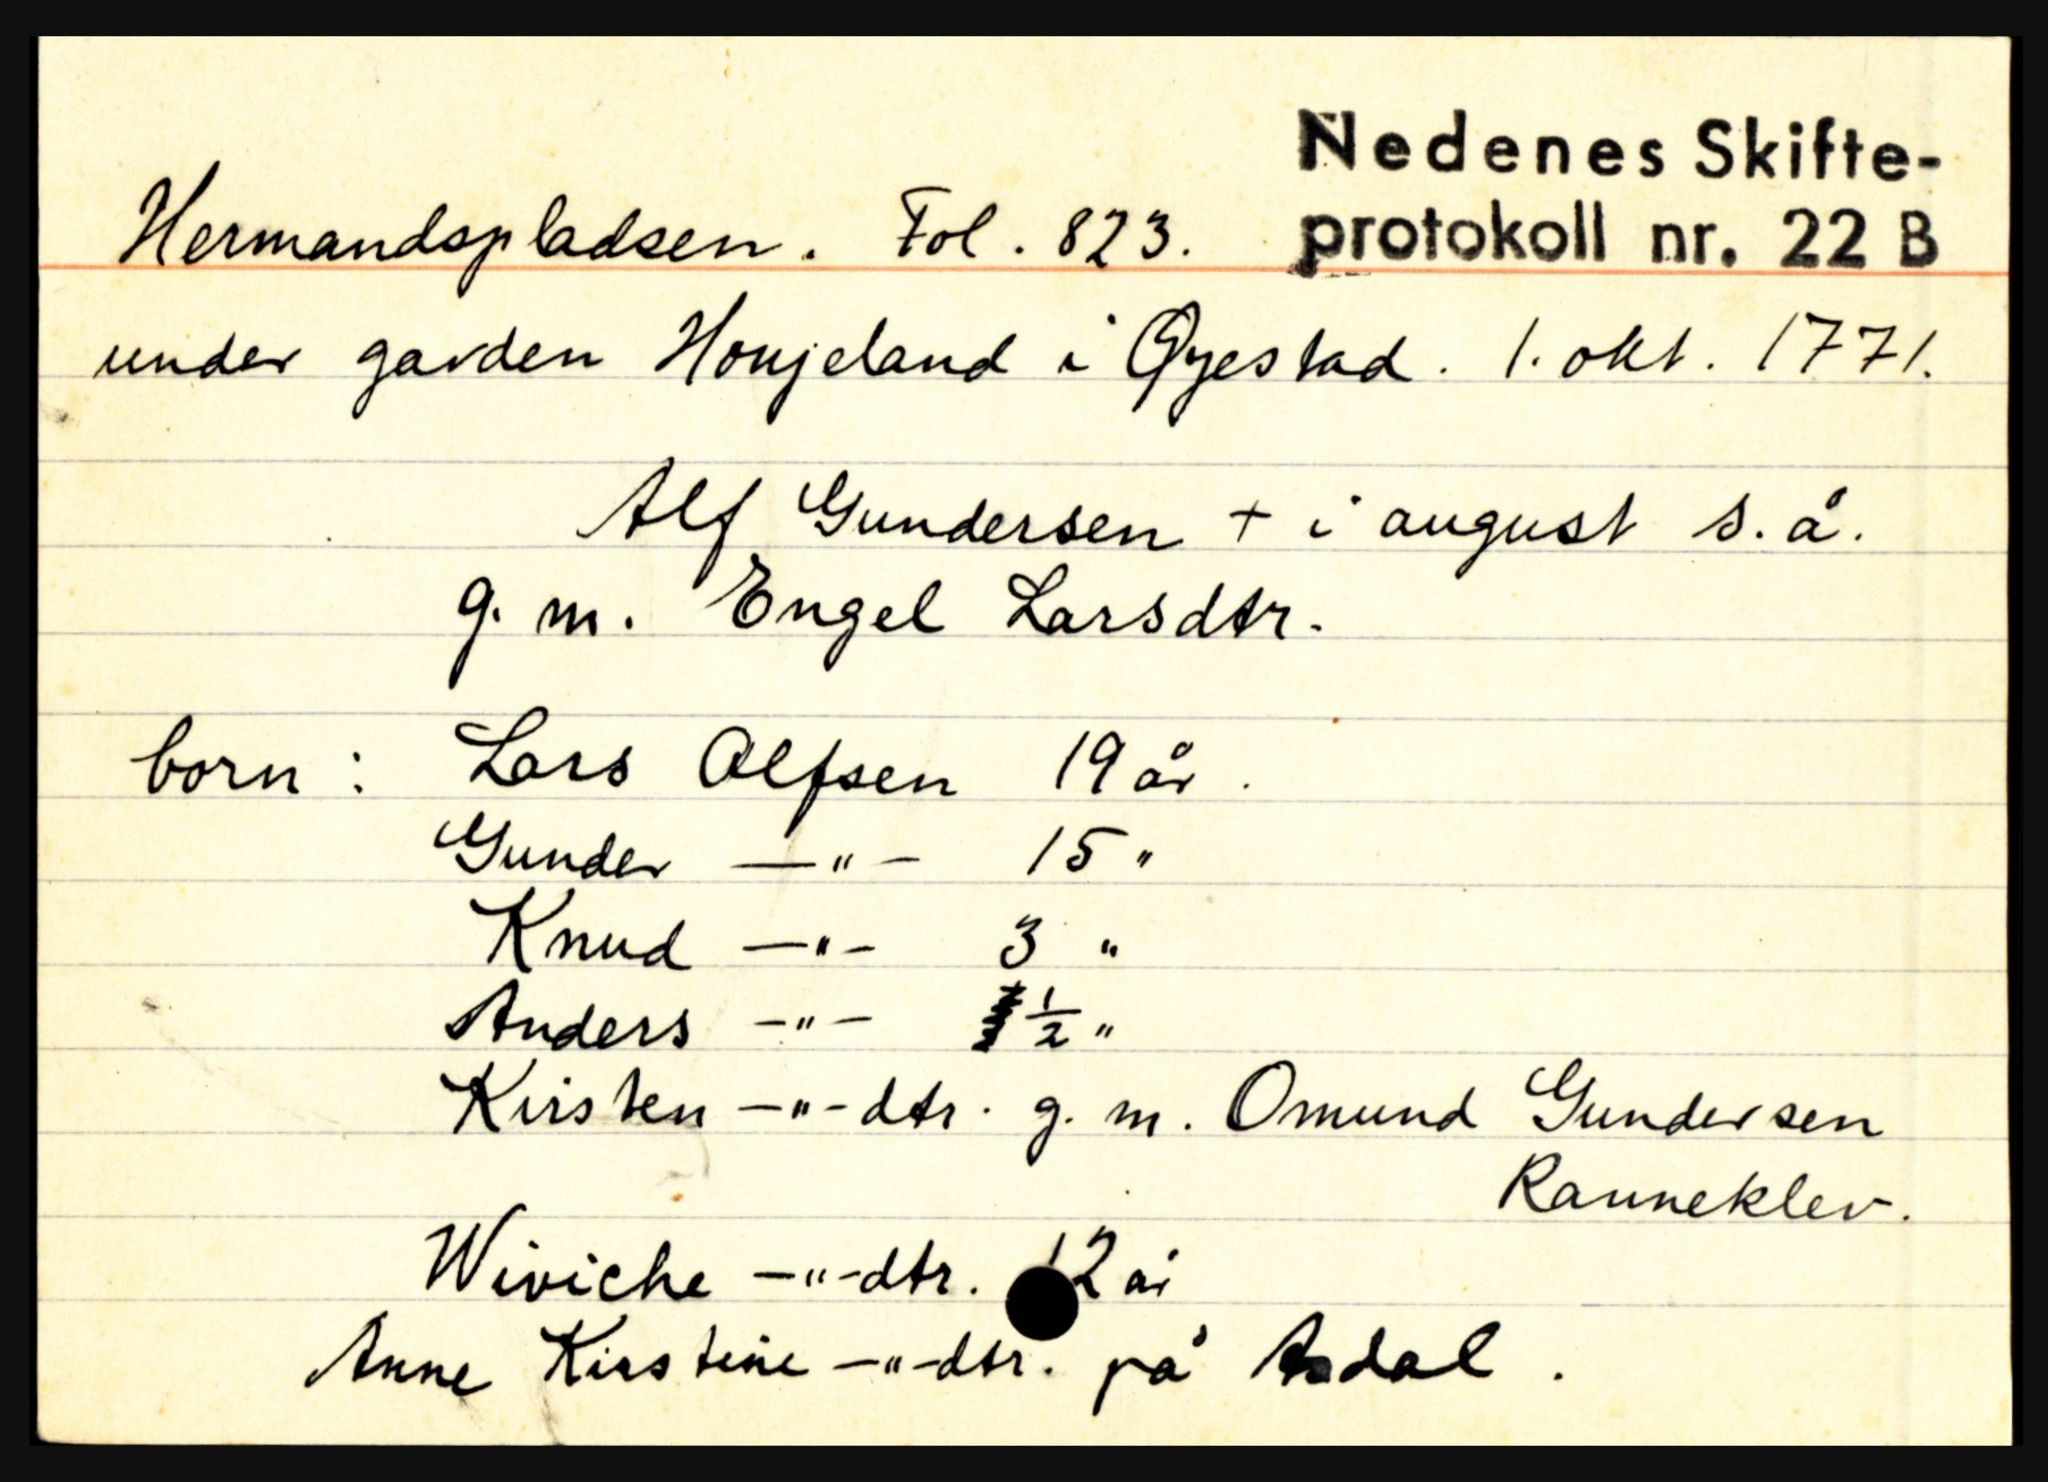 Nedenes Skifte-
Hermandspladsen. Fol. 823. protokoll nr. 22 B
under garden Houjeland i Øyestad. 1. okt. 1771.
Alf Gundersen + i august s. å.
g. m. Engel Larsdtr.
born: Lars Alfsen 19 år.
Gunder —"— 15 "
Knud —"— 3 "
Anders —"— ½ "
Kirsten —"— dtr. g. m. Omund Gundersen
Ranneklev.
Wiviche —"—dtr. 12 år
Anne Kirstine —"—dtr. på Asdal.